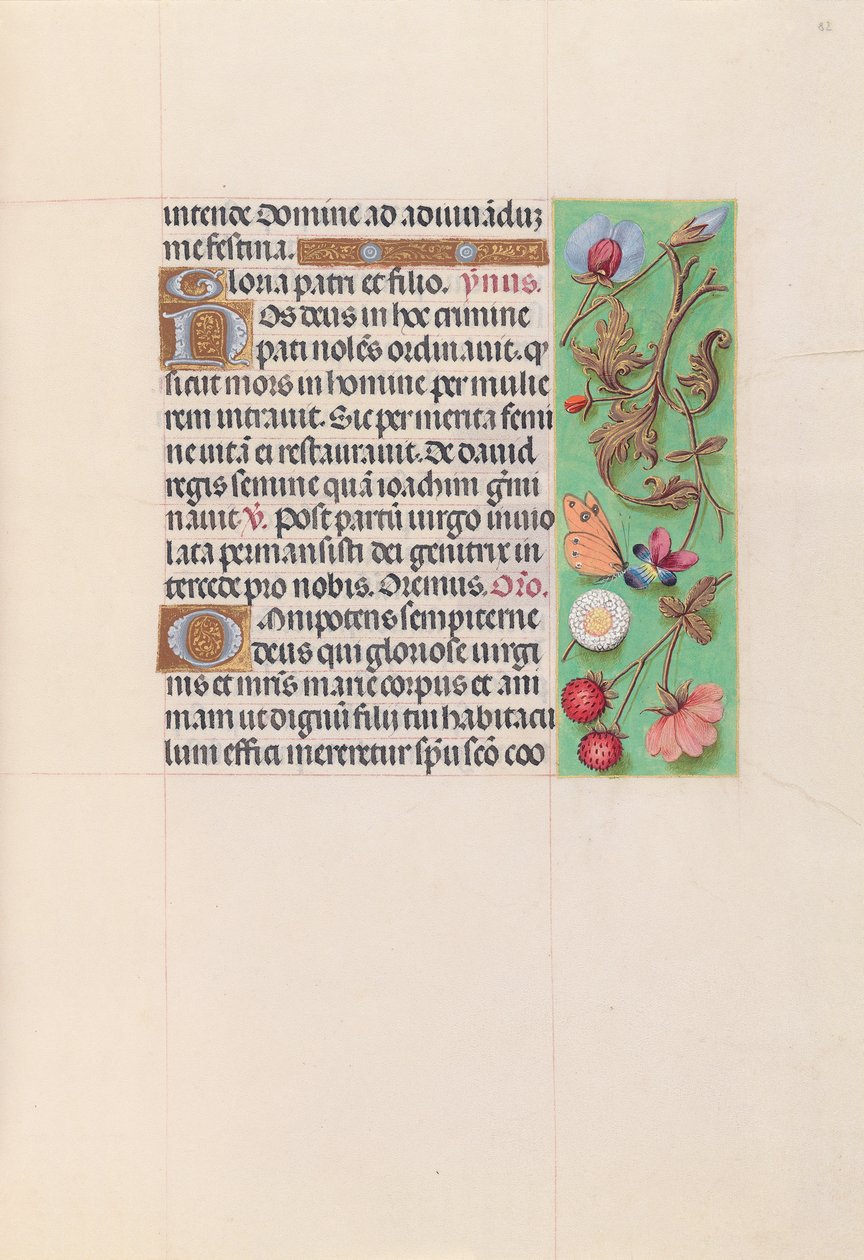 82
intende Domine ad adiuuādūꝫ
me festina.
Gloria patri et filio. ẏnus.
Nos deus in hoc crimine
pati nolēs ordinauit. ꝙ
sicut mors in homine per mulie
rem intrauit. Sic per merita femi
ne uitā ei restaurauit. De dauid
regis semine quā ioachim gīmi
nauit ẏ. Post partū uirgo inuio
lata permansisti dei genitrix in
tercede pro nobis. Oremus. Orō.
Omnipotens sempiterne
deus qui gloriose uirgi
nis et mr̄is marie corpus et ani
mam ut dignū filij tui habitacu
lum effici mereretur sp̄u scō coo